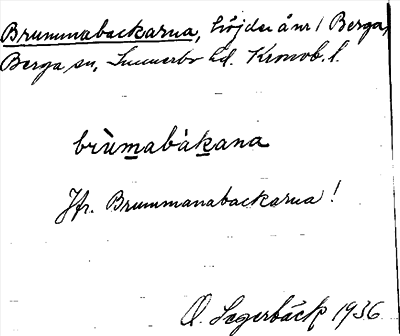 Brummabackarna, höjder å nr 1 Berga,
Berga sn, Sunnerbo hd. Kronob. l.
brùmabàkana
Jfr. Brummanabackarna!
O. Lagerbäck 1936